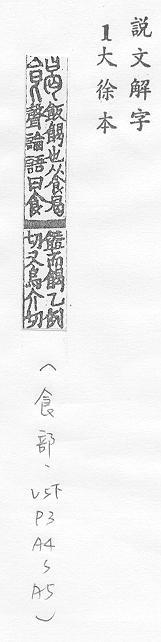 説文解字
1大徐本
餲
飯餲也从食曷
聲論語曰食
饐而餲乙例
切又烏介切
（食部、V5下P3A4〜A5）